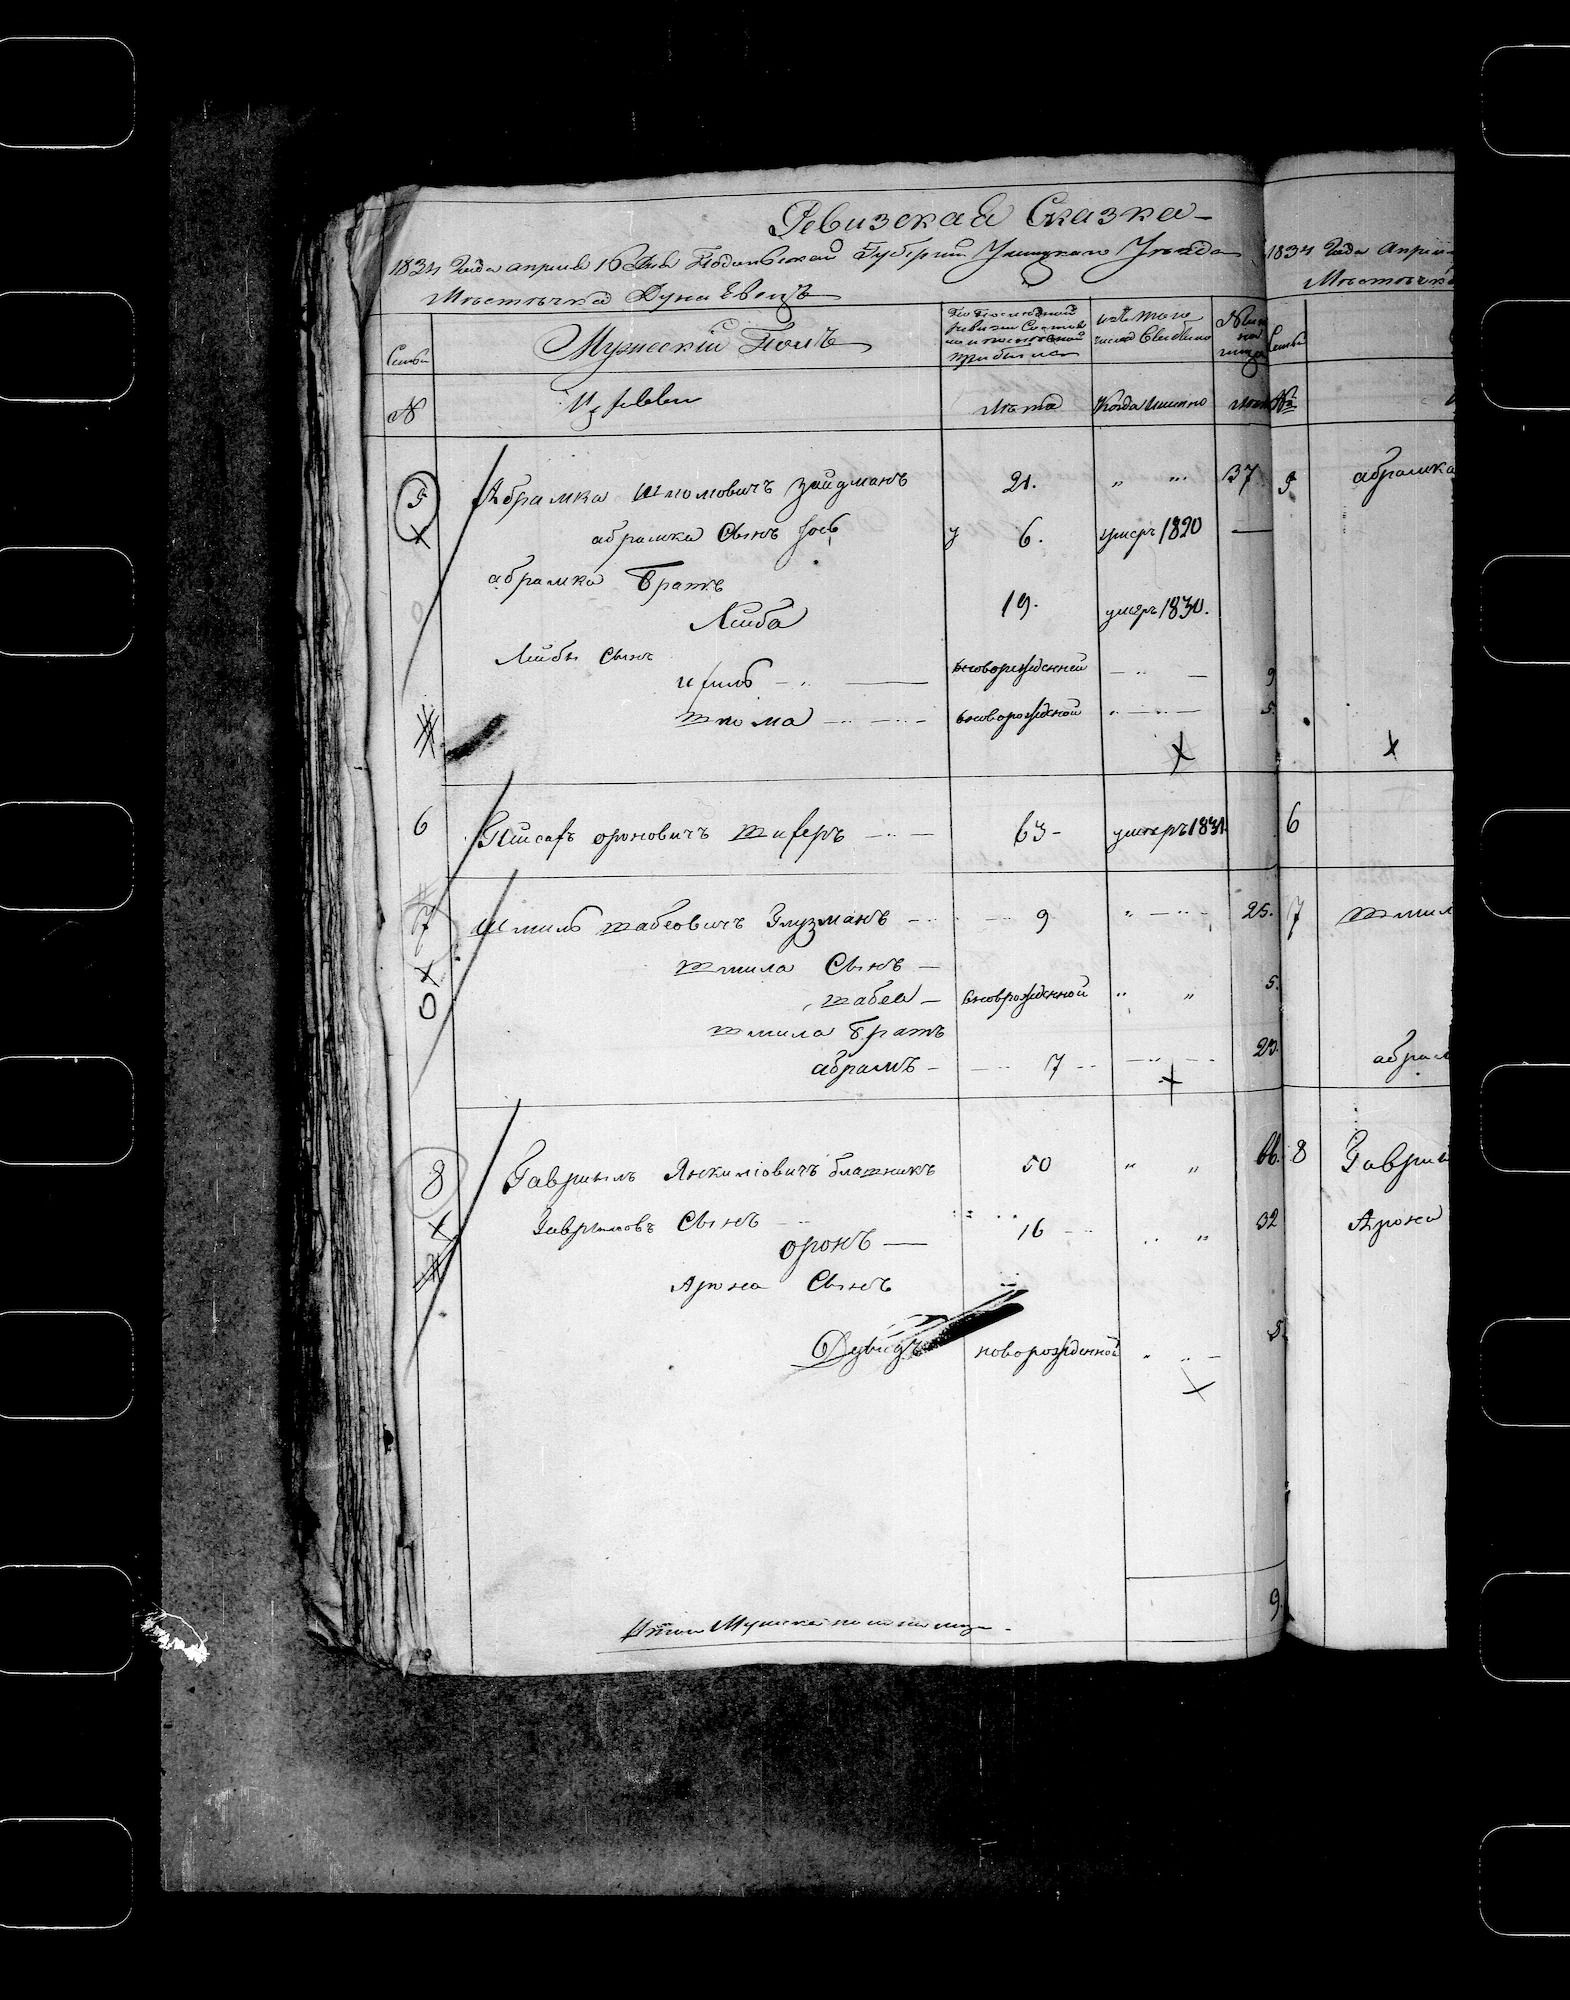 Ревизская Сказка
1834 Года апреля 16 Дня Подольской Губернии Ушицкаго Уезда
Местечка Дунаевецъ
Семьи
Мужескій Полъ
По последной ревизіи Состояло и после оной прибыло
изъ того числа Выбыло
Ныне на лицо
№
Лета
Когда Именно
Лета
5 Абрамка Шмомовичъ Зайдманъ 21. „ „ 37
абрамка Сынъ Іось 6. умеръ 1820 —
абрамка Братъ
Лейба 19. умеръ 1830.
Лейбы Сынъ
Ицыль вноворожденный 9
шлома вноворожденой 5.
6 Лейсафъ ороновичъ 63 умеръ 1831
7 Шмиль шабсовичъ Глузманъ 9 25.
шмила Сынъ
шабса вноврожденной „ „ 5.
шмила братъ
абрамъ 7 23.
8 Гаврыиль Янкиліовичъ блашникъ 50 „ „ 66.
Гаврылова Сынъ
оронъ 16 „ „ 32
Арона Сынъ
Дувидъ новорожденной 5
Итого Мужеска пола на лицо 9
1834 Года Апре
Местечка
Семьи
№
5 абрамка
6
7 шмил
абрам
8 Гаврил
Арона